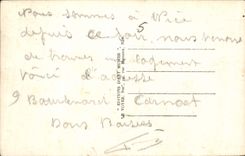 Nous sommes à Nice
depuis ce soir, nous venons
de trouver un logement
voici l'adresse
9 Boulevard Carnot
Bons Baisers